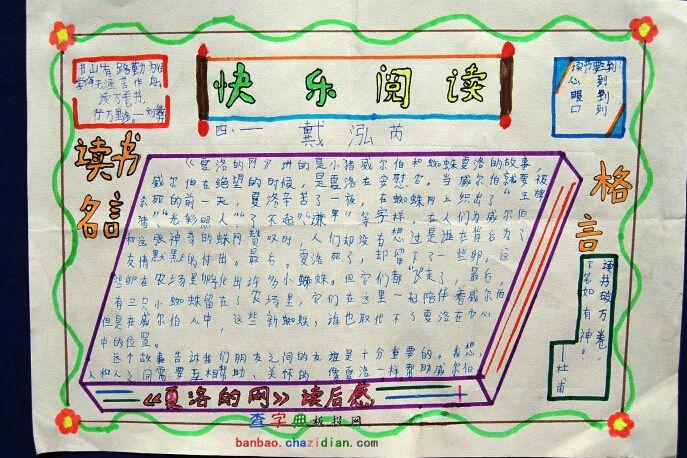 快乐阅读
四、一 戴泓芮
书山有路勤为径
学海无涯苦作舟
读万卷书，
行万里路。——刘彝
读书要三到
心到
眼到
口到
读书
名言
格言
《夏洛的网》讲的是小猪威尔伯和蜘蛛夏洛的故事
威尔伯在绝望的时候，是夏洛在安慰它。当威尔伯就要被
杀死的前一天，夏洛辛苦了一夜，在蜘蛛网上织出了“王牌
猪”“光彩照人”“了不起”“谦卑”等字样，在人们为威尔伯
和这张神奇的蛛网赞叹时，人们却没有想过是谁在背后为了
友情默默的付出。最后，夏洛死了，却留下了一些卵，这
些卵在农场里孵化出许多小蜘蛛。但它们都飞走了，最后，
有三只小蜘蛛留在了农场里，它们在这里一起陪伴着威尔伯
但是在威尔伯心中，这些新蜘蛛，谁也取代不了夏洛在它心
中的位置。
这个故事告诉我们朋友之间的友谊是十分重要的。我想，
人和人之间需要互相帮助、关怀的，像夏洛一样帮助威尔伯
《夏洛的网》读后感
读书破万卷，
下笔如有神。
——杜甫
查字典板报网
banbao.chazidian.com